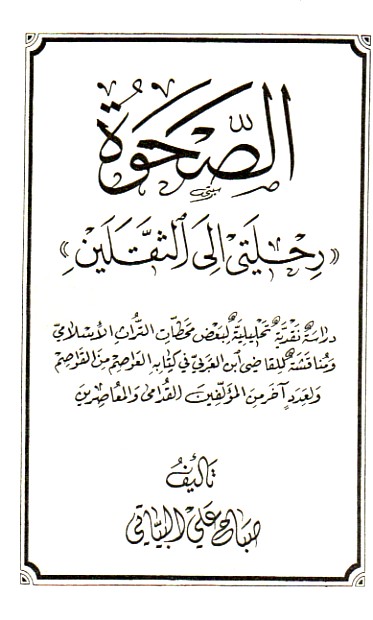 الصَّحْوَةُ
« رِحْلَتِي إِلَى الثَّقَلَيْنِ »
دراسَة نقديَّة تحليليَّة لبعض محطات التراث الإسلامي
ومناقشة للقاضي ابن العربي في كتابه العواصم من القواصم
ولعدد آخر من المؤلفين القدامى والمعاصرين
تأليف
صباح علي البياتي